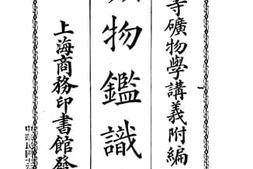 等礦物學講義附編
物鑑識
上海商務印書館發